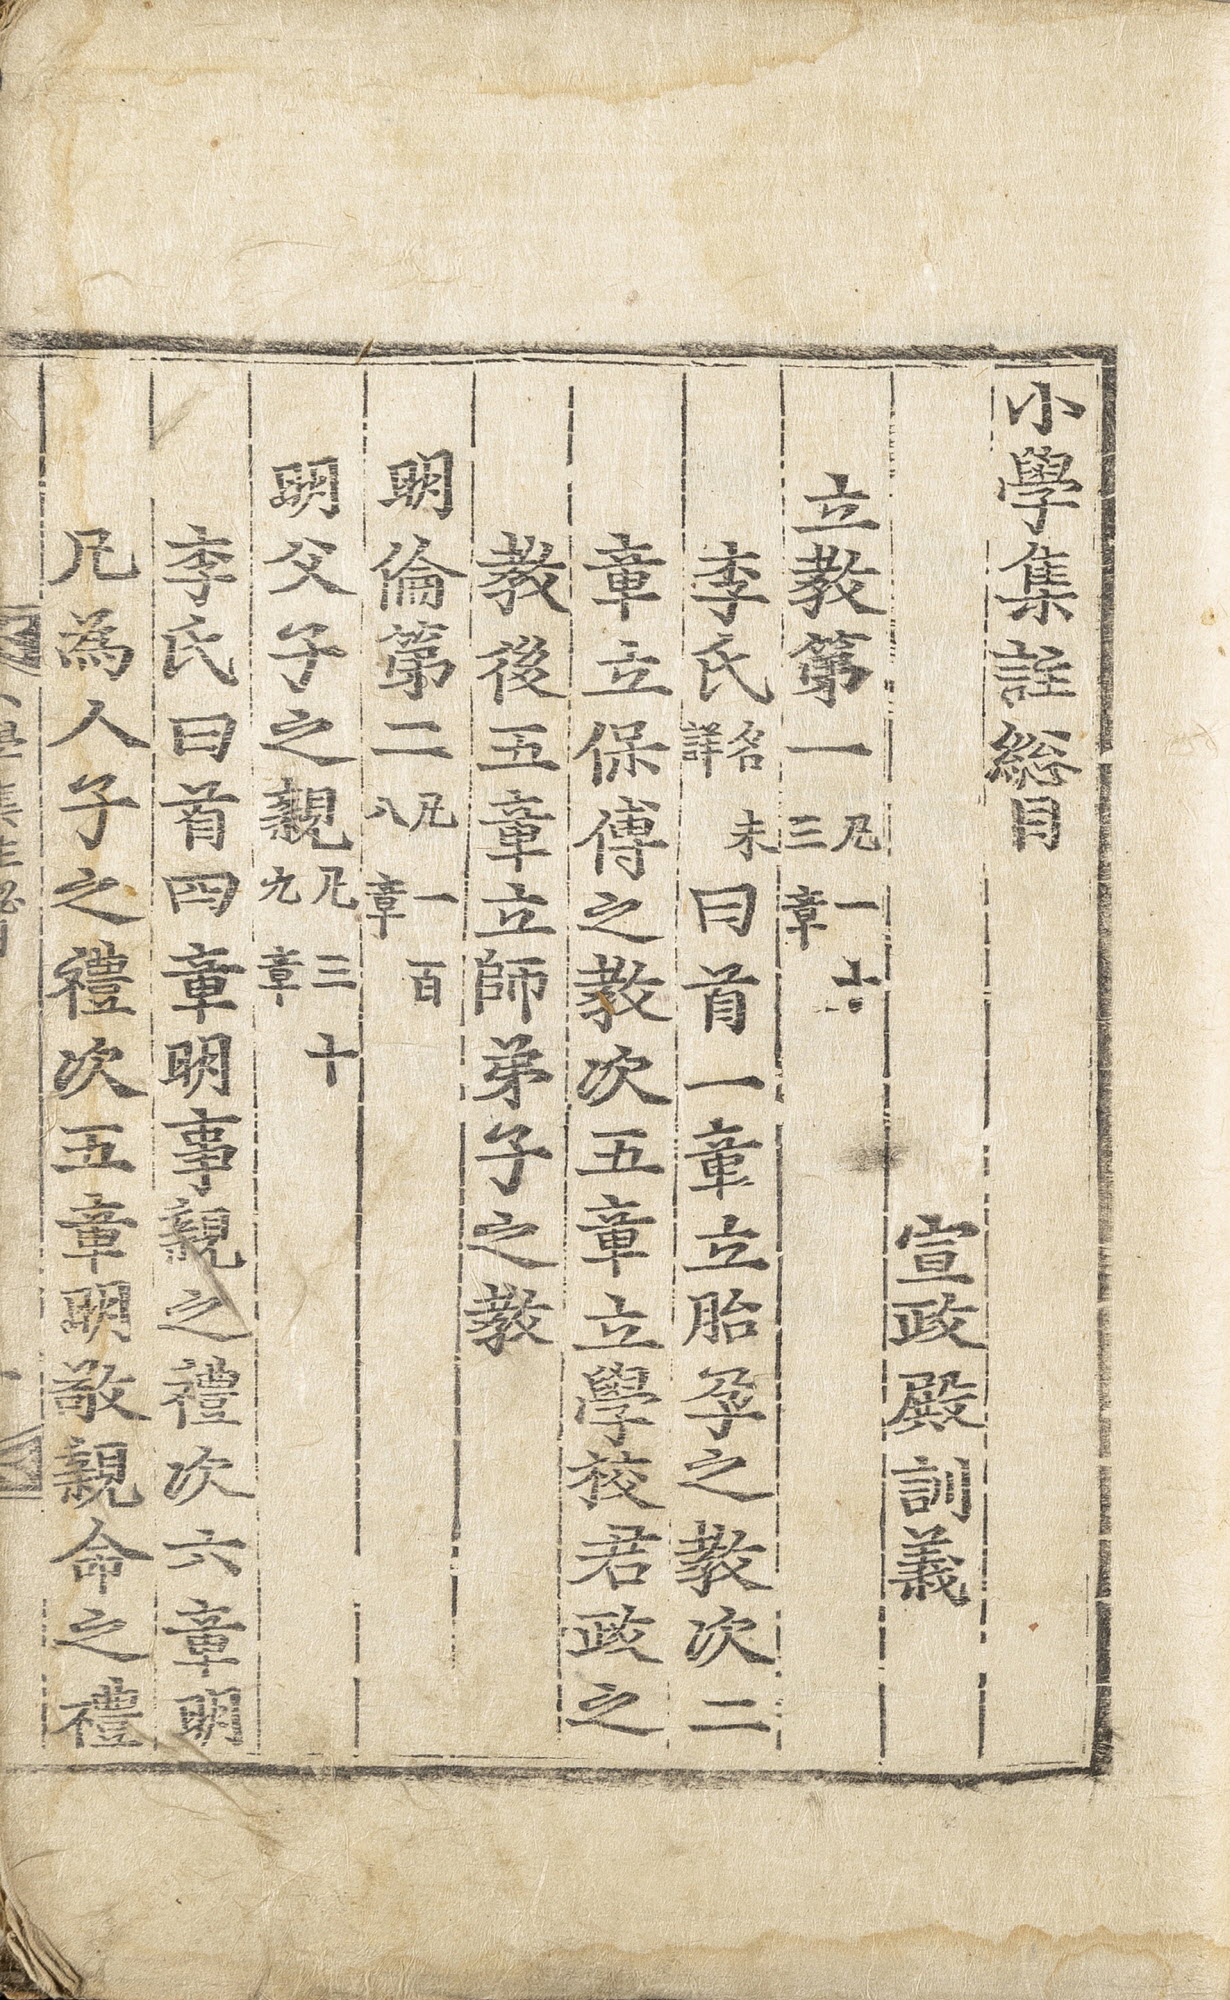 小學集註総目
宣政殿訓義
立教第一凡一十三章
李氏名未詳曰首一章立胎孕之教次二
章立保傅之教次五章立學校君政之
教後五章立師弟子之教
明倫第二凡一百八章
明父子之親凡三十九章
李氏曰首四章明事親之禮次六章明
凡為人子之禮次五章明敬親命之禮